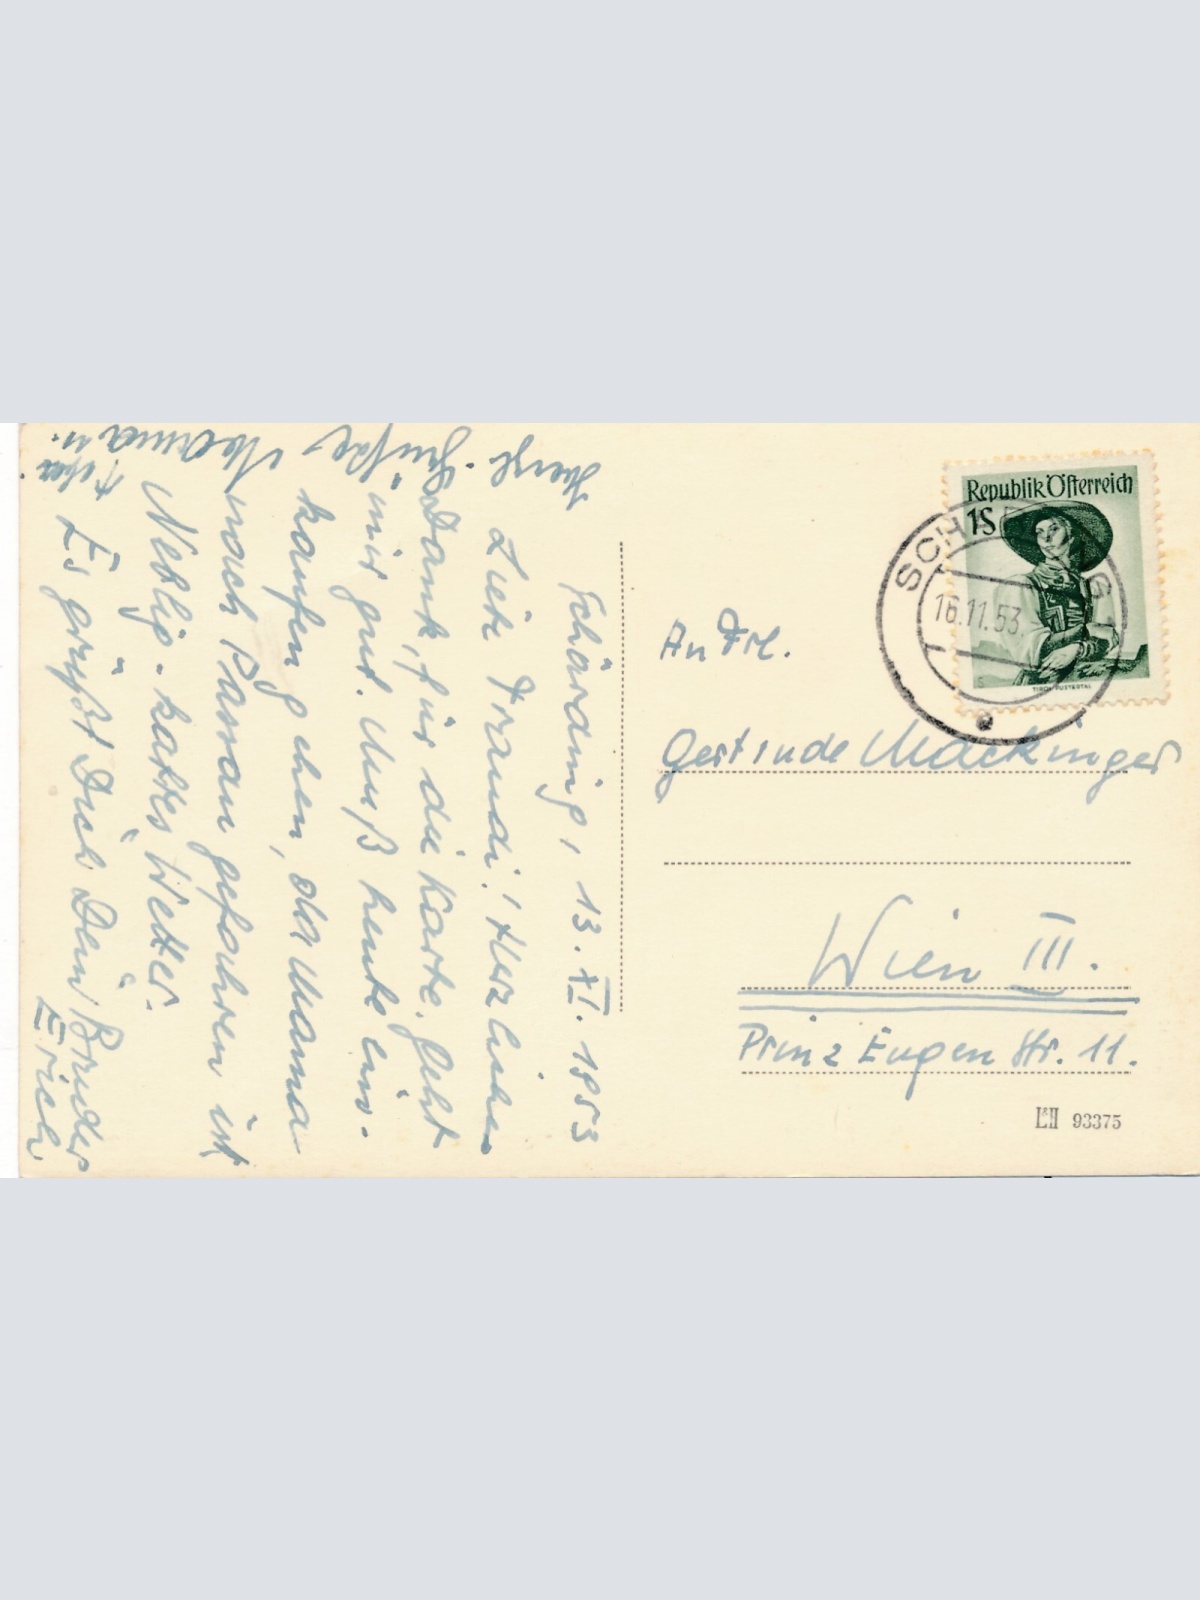 Schärding, 13. XI. 1953
Liebe Traudi! Herzlichen
Dank, für die Karte. Geht
mir gut. Muß heute ein-
kaufen gehen, da Mama
nach Passau gefahren ist
Neblig - kaltes Wetter.
Es grüßt Dich Dein Bruder
Erich
Herzl. Grüße
Republik Österreich
1S
TIROL PUSTERTAL
SCHÄRDING 1
16.11.53
An Frl.
Gertrude Mackinger
Wien III.
Prinz Eugen Str. 11.
L&H 93375